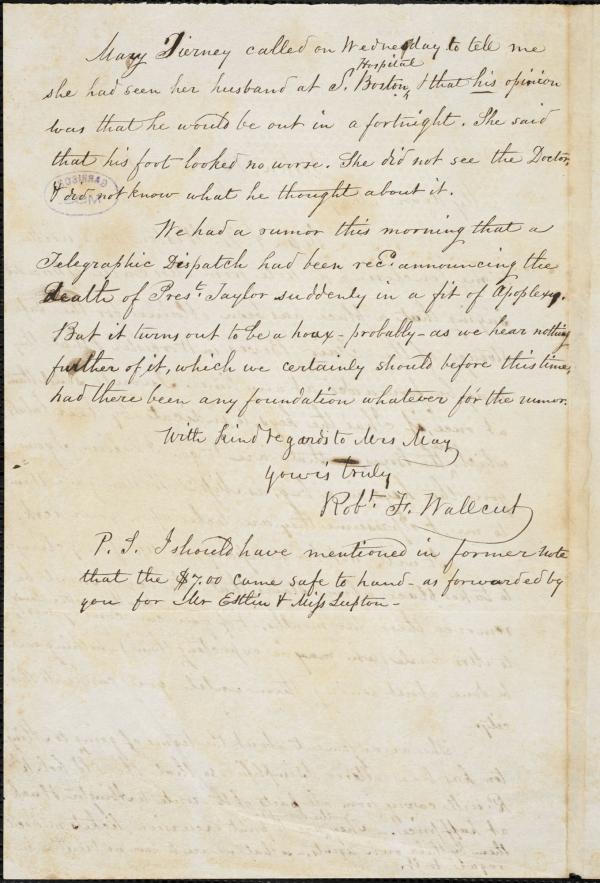 Mary Tierney called on Wednesday to tell me
she had seen her husband at S. Boston Hospital & that his opinion
was that he would be out in a fortnight. She said
that his foot looked no worse. She did not see the Doctor,
& did not know what he thought about it.
We had a rumor this morning that a
Telegraphic Dispatch had been recd. announcing the
death of Prest. Taylor suddenly in a fit of Apoplexy.
But it turns out to be a hoax - probably - as we hear nothing
further of it, which we certainly should before this time,
had there been any foundation whatever for the rumor.
With kind regards to Mrs May
yours truly
Robt. F. Wallcut
P. S. I should have mentioned in former note
that the $7.00 came safe to hand - as forwarded by
you for Mr Estlin & Miss Lupton -